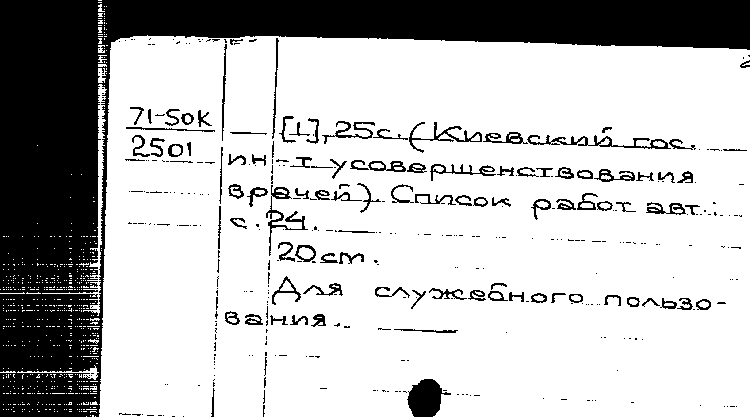 71-50К
2501
— [1], 25с. (Киевский гос.
ин-т усовершенствования
врачей). Список работ авт.:
с. 24.
20 см.
Для служебного пользо-
вания.